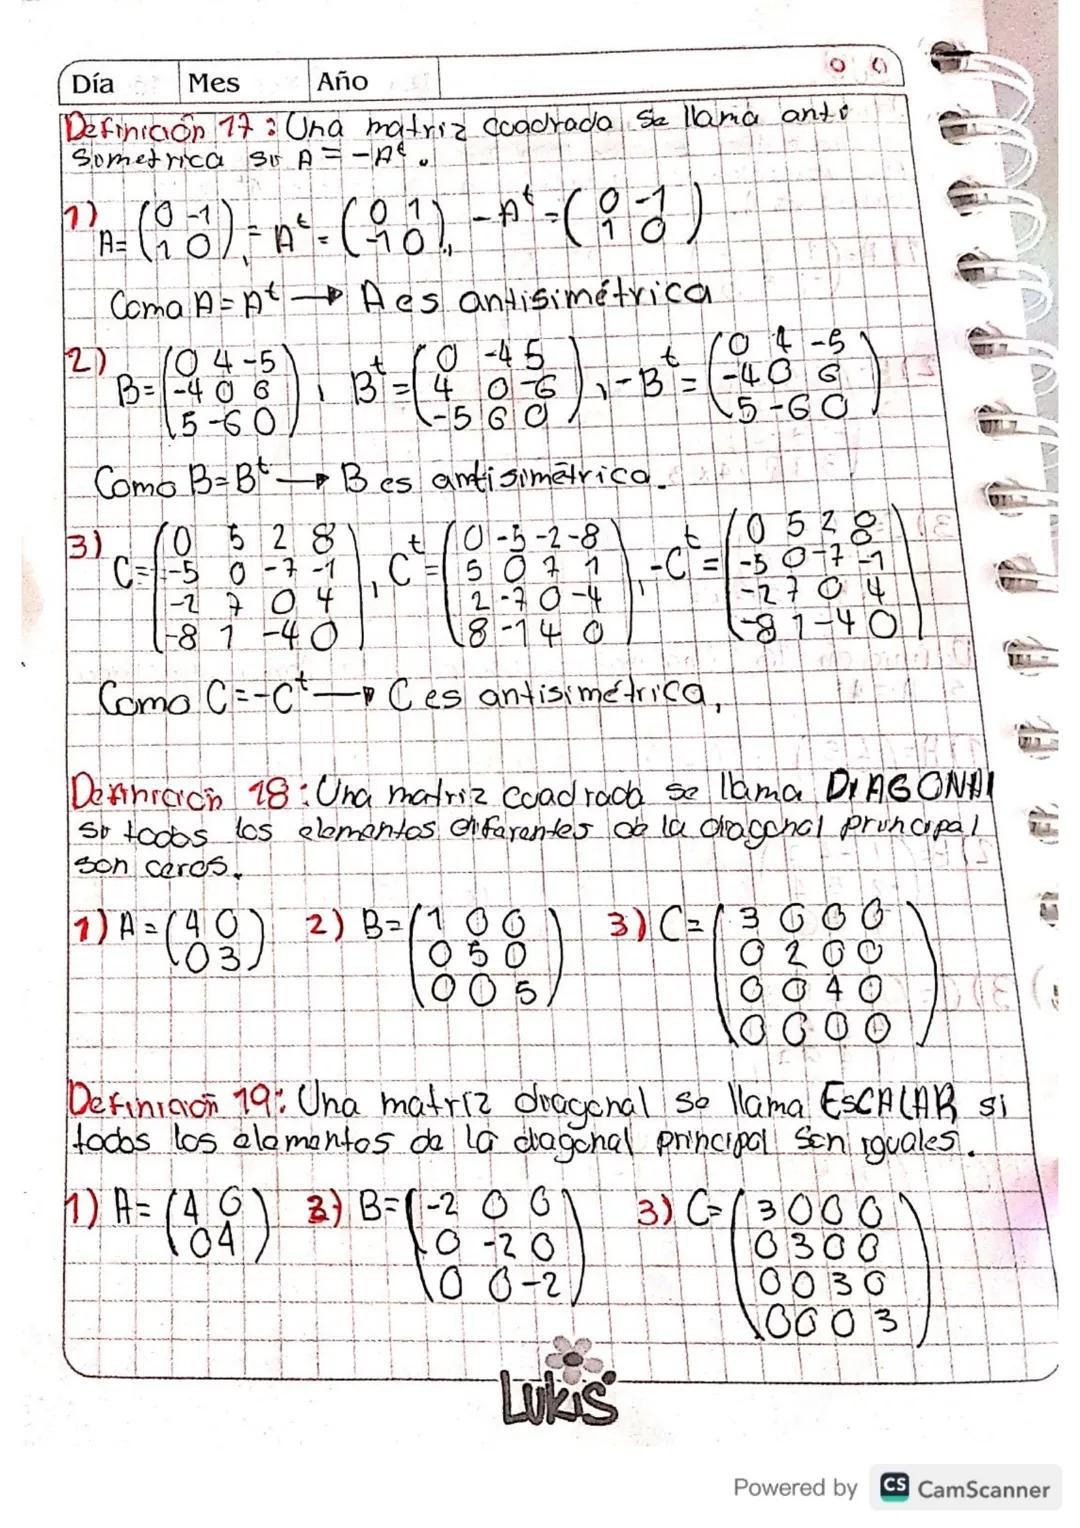 Día Mes Año
Definición 17: Una matriz cuadrada se llama anti
simetrica si A = -Aᵗ.
1) A= (0 -1 / 1 0), = Aᵗ = (0 1 / -1 0),, -Aᵗ = (0 -1 / 1 0)
Como A = Aᵗ → A es antisimétrica
2) B= (0 4 -5 / -4 0 6 / 5 -6 0), Bᵗ = (0 -4 5 / 4 0 -6 / -5 6 0), -Bᵗ = (0 4 -5 / -4 0 6 / 5 -6 0)
Como B=Bᵗ → B es antisimétrica.
3) C= (0 5 2 8 / -5 0 -7 -1 / -2 7 0 4 / -8 1 -4 0), Cᵗ = (0 -5 -2 -8 / 5 0 7 1 / 2 -7 0 -4 / 8 -1 4 0), -Cᵗ = (0 5 2 8 / -5 0 -7 -1 / -2 7 0 4 / -8 1 -4 0)
Como C=-Cᵗ → C es antisimétrica,
Definición 18: Una matriz cuadrada se llama DIAGONAL
si todos los elementos diferentes de la diagonal principal
son ceros.
1) A = (4 0 / 0 3) 2) B= (1 0 0 / 0 5 0 / 0 0 5) 3) C= (3 0 0 0 / 0 2 0 0 / 0 0 4 0 / 0 0 0 0)
Definición 19: Una matriz diagonal se llama ESCALAR si
todos los elementos de la diagonal principal son iguales.
1) A= (4 0 / 0 4) 2) B= (-2 0 0 / 0 -2 0 / 0 0 -2) 3) C= (3 0 0 0 / 0 3 0 0 / 0 0 3 0 / 0 0 0 3)
Lukis
Powered by CS CamScanner